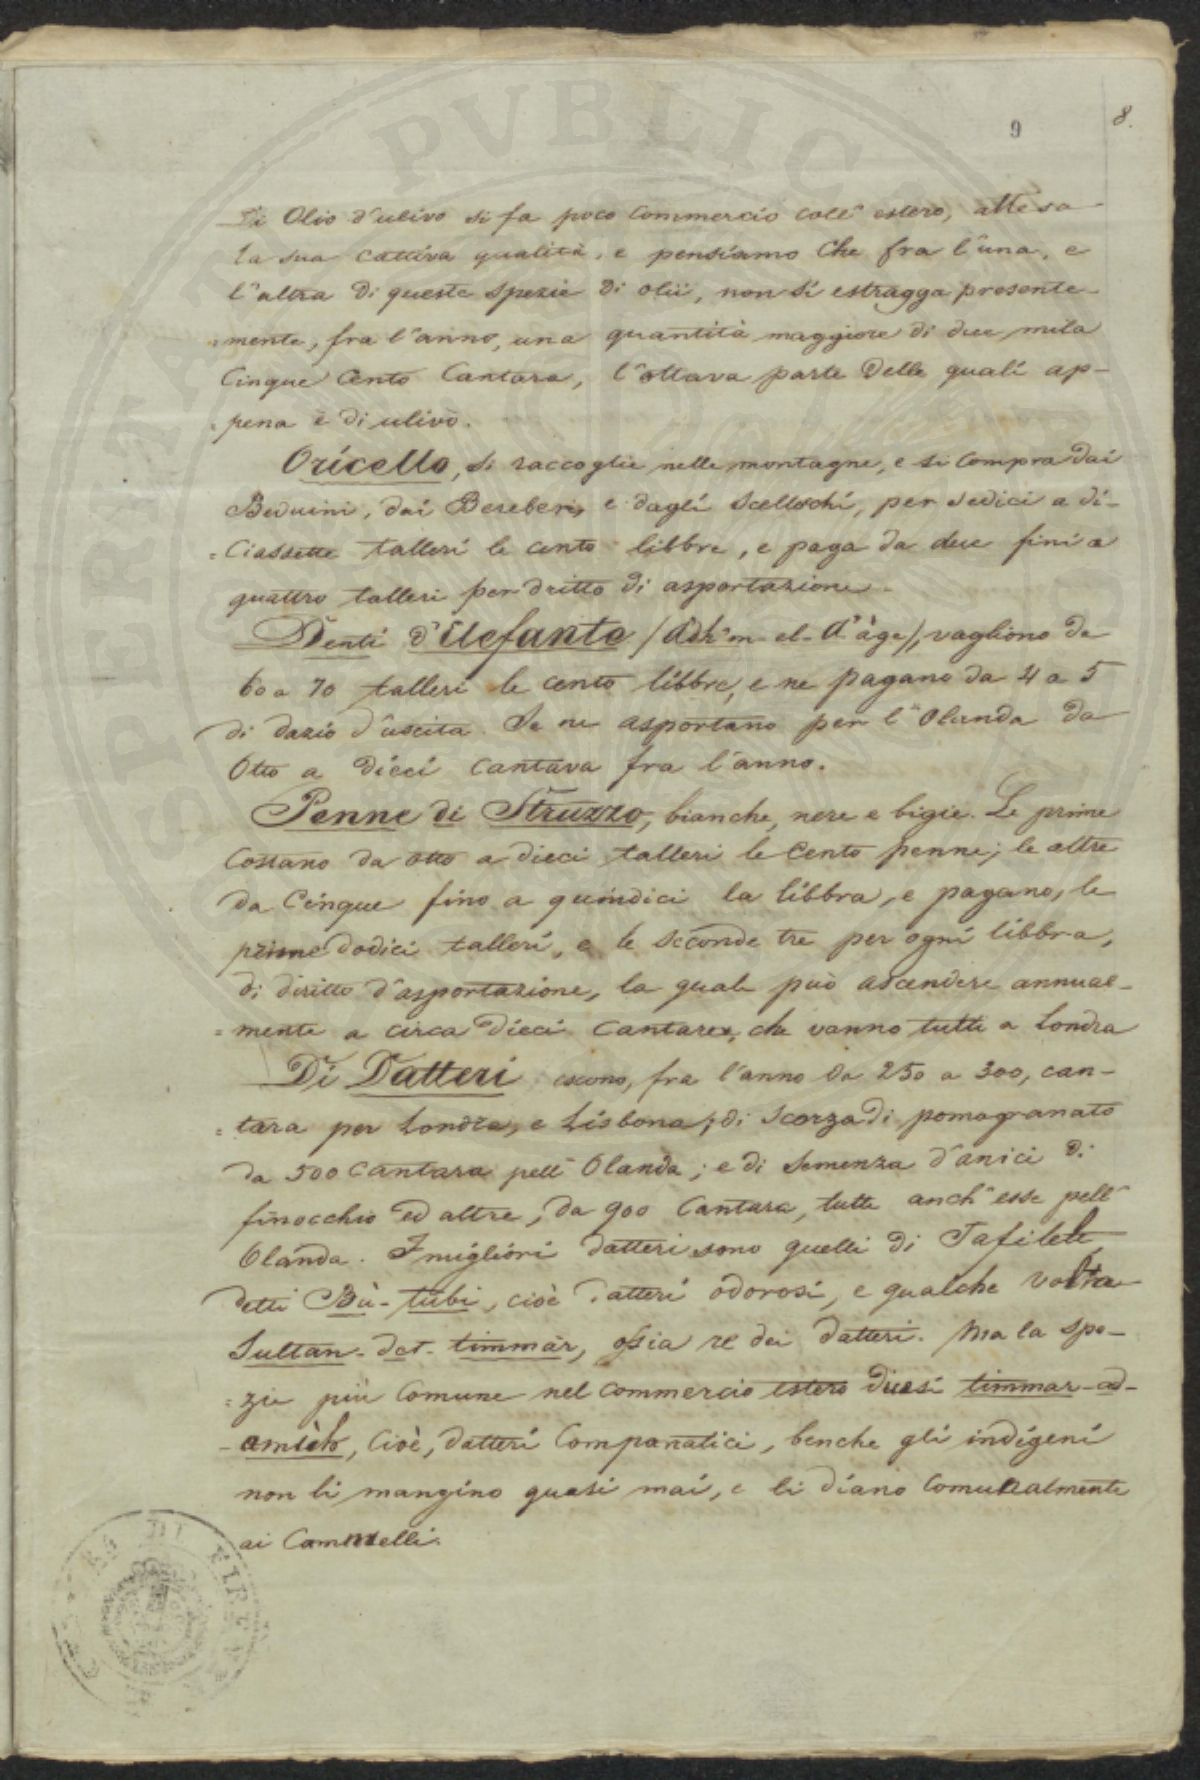 9
8.
Di Olio d'ulivo si fa poco Commercio coll' estero, attesa
la sua cattiva qualità, e pensiamo Che fra l'una, e
l'altra di queste spezie di olii, non si estragga presente-
=mente, fra l'anno, una quantità maggiore di due mila
Cinque Cento Cantara, l'ottava parte delle quali ap-
pena è di ulivo.
Oricello, si raccoglie nelle montagne, e si Compra dai
Beduini, dai Bereberi, e dagli Scellochi, per sedici a di-
=Ciassette talleri le cento libbre, e paga da due fini a
quattro talleri per dritto di asportazione.
Denti d'Elefante /Adh'm-el-A'àge/, vagliono da
60 a 70 talleri le cento libbre, e ne pagano da 4 a 5
di dazio d'uscita. Se ne asportano per l'Olanda da
Otto a dieci cantara fra l'anno.
Penne di Struzzo, bianche, nere e bigie. Le prime
Costano da otto a dieci talleri le Cento penne; le altre
da Cinque fino a quindici la libbra, e pagano, le
prime dodici talleri, e le seconde tre per ogni libbra,
di diritto d'asportazione, la quale può ascendere annual-
=mente a circa dieci Cantara, che vanno tutte a Londra
Di Datteri escono, fra l'anno da 250 a 300, can-
=tara per Londra, e Lisbona; di scorza di pomogranato
da 500 Cantara pell' Olanda; e di semenza d'anici di
finocchio ed altre, da 900 Cantara, tutte anch'esse pell'
Olanda. I migliori datteri sono quelli di Tafilelt,
detti Bù-tùbi, cioè datteri odorosi, e qualche volta
Sultan-det-timmàr, ossia re dei datteri. Ma la spe-
=zie più Comune nel Commercio estero dicesi timmar-ad-
, Cioè, datteri Companatici, benche gli indigeni
non li mangino quasi mai, e li diano Comunalmente
ai Cammelli.